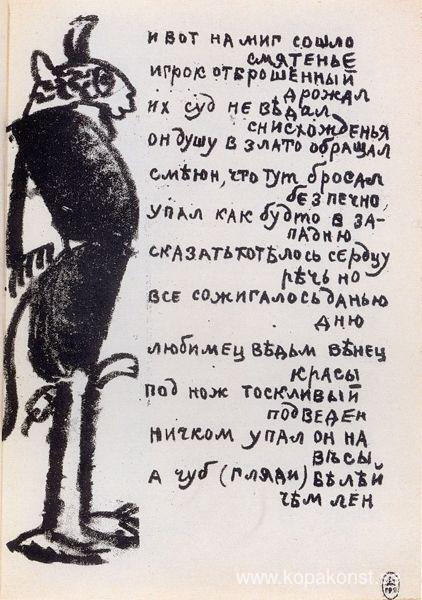 И ВОТ НА МИГ СОШЛО
СМЯТЕНЬЕ
ИГРОК ОТБРОШЕННЫЙ
ДРОЖАЛ
ИХ СУД НЕ ВѢДАЛ
СНИСХОЖДЕНЬЯ
ОН ДУШУ В ЗЛАТО ОБРАЩАЛ
СМѢЮН, ЧТО ТУТ БРОСАЛ
БЕЗПЕЧНО,
УПАЛ КАК БУДТО В ЗА-
ПАДНЮ
СКАЗАТЬ ХОТѢЛОСЬ СЕРДЦУ
РѢЧЬ НО
ВСЕ СОЖИГАЛОСЬ ДАНЬЮ
ДНЮ
ЛЮБИМЕЦ ВѢДЬМ ВѢНЕЦ
КРАСЫ
ПОД НОЖ ТОСКЛИВЫЙ
ПОДВЕДЕН
НИЧКОМ УПАЛ ОН НА
ВѢСЫ
А ЧУБ (ГЛЯДИ) БѢЛѢЙ
ЧѢМ ЛЕН
www.kopakonst.se